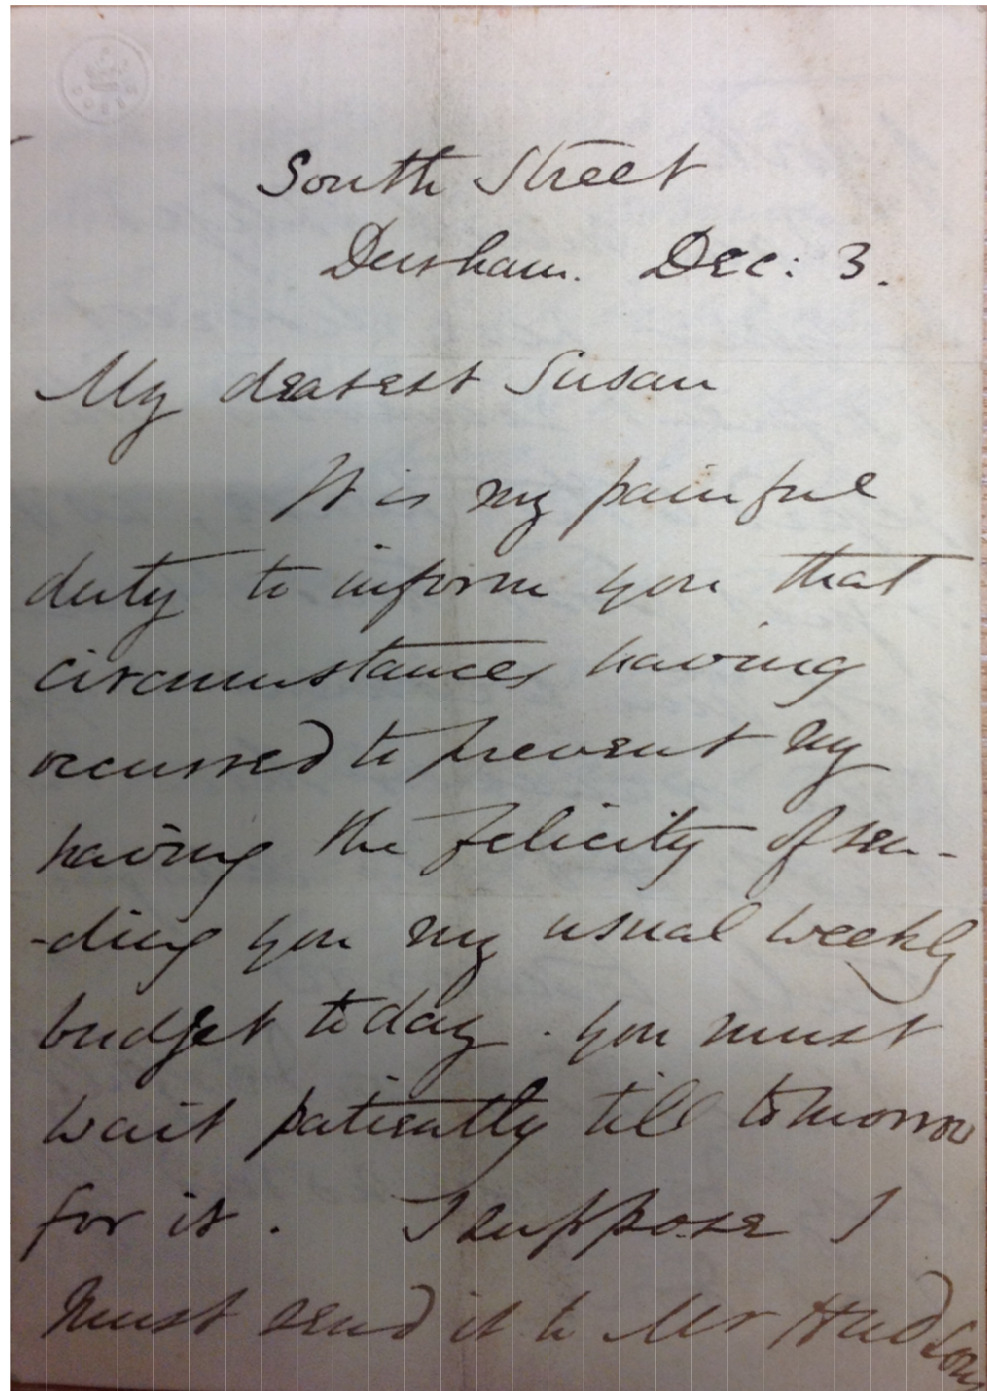 South Street
Dursham. Dec: 3.
My dearest Susan
It is my painful
duty to inform you that
circumstances having
occurred to prevent my
having the felicity of sen-
-ding you my usual weekly
budget today. you must
wait patiently till tomorrow
for it. I suppose I
must send it to Mr Hudsons